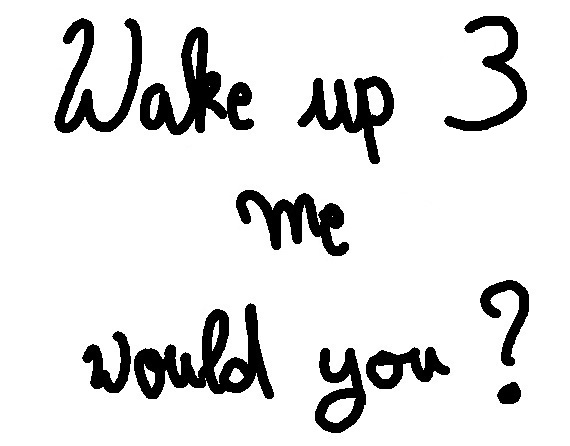 Wake up 3
me
would you ?